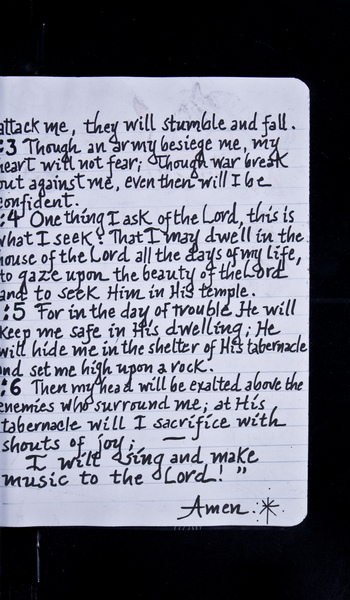 attack me, they will stumble and fall.
:3 Though an army besiege me, my
heart will not fear; Though war break
out against me, even then will I be
confident.
:4 One thing I ask of the Lord, this is
what I seek: That I may dwell in the
house of the Lord all the days of my life,
to gaze upon the beauty of the Lord
and to seek Him in His temple.
:5 For in the day of trouble He will
keep me safe in His dwelling; He
will hide me in the shelter of His tabernacle
and set me high upon a rock.
:6 Then my head will be exalted above the
enemies who surround me; at His
tabernacle will I sacrifice with
shouts of joy; —
I will sing and make
music to the Lord!"
Amen.